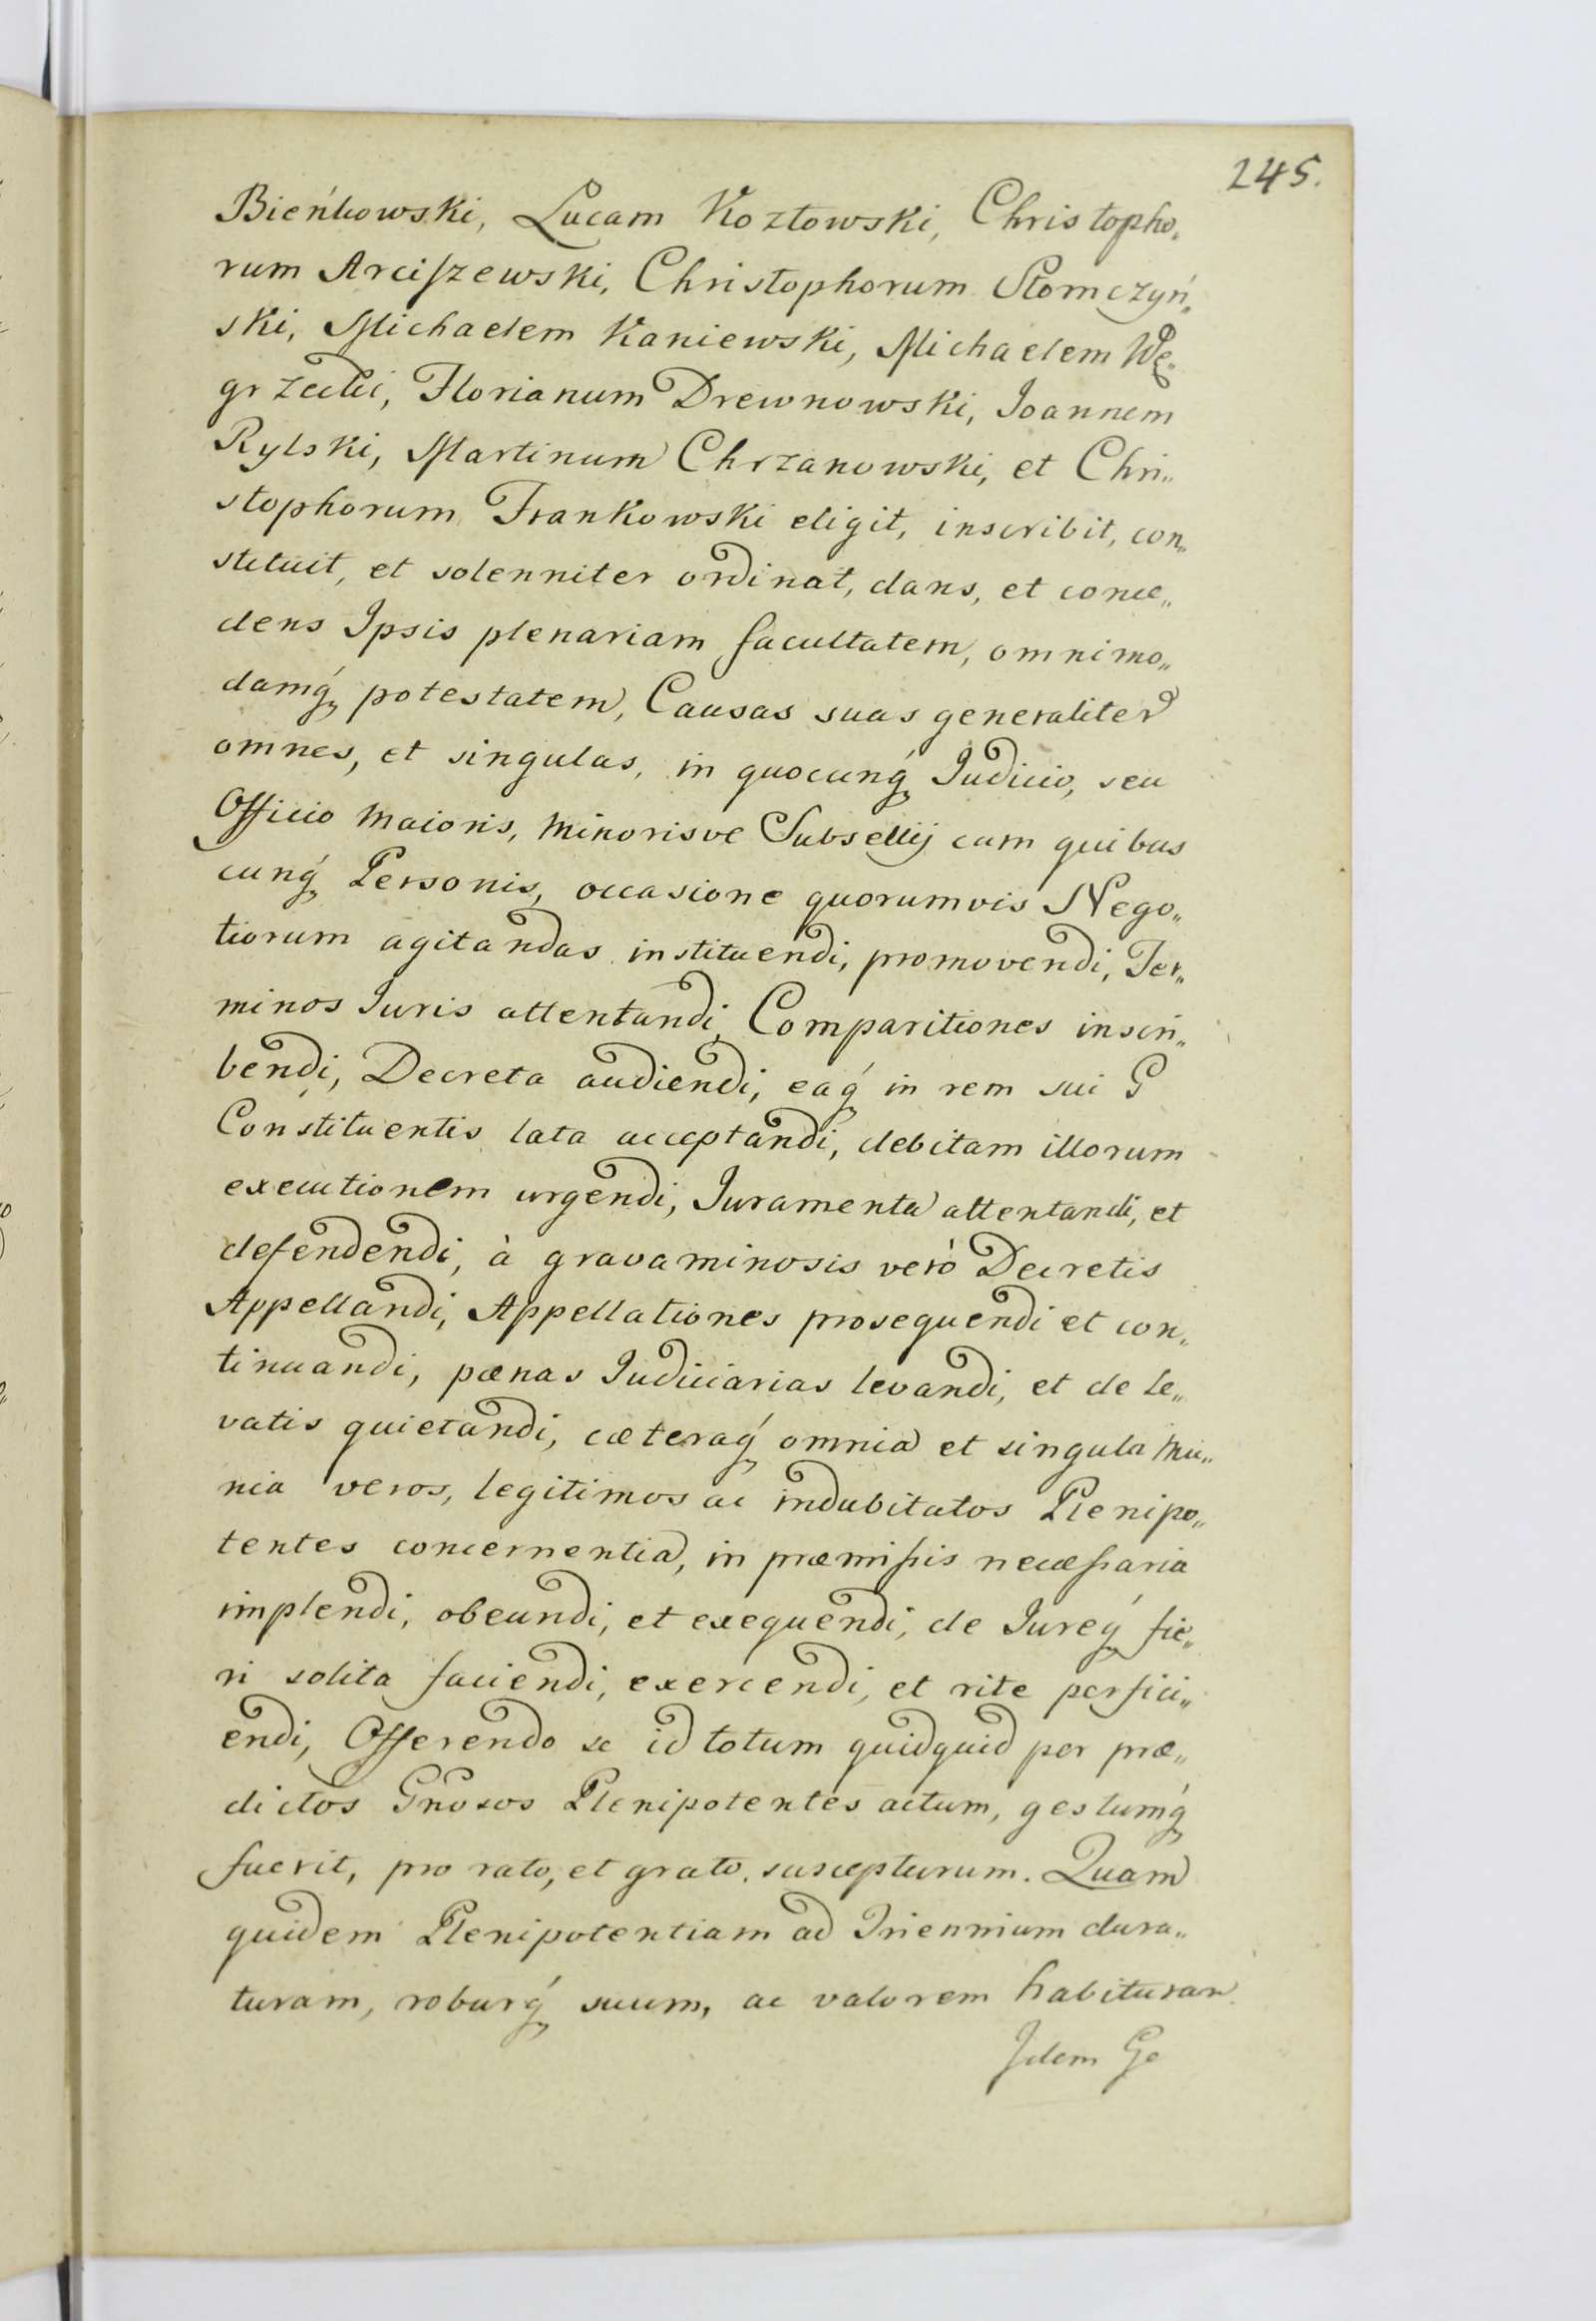 245.
Bieńkowski, Lucam Kozłowski, Christopho„
rum Arciſzewski, Christophorum Słomczyń„
ski, Michaelem Kaniewski, Michaelem Wę„
grzecki, Florianum Drewnowski, Joannem
Rylski, Martinum Chrzanowski, et Chri„
stophorum Frankowski eligit, inscribit, con„
stituit, et solenniter ordinat, dans, et conce„
dens Ipsis plenariam facultatem, omnimo„
damq́ potestatem, Causas suas generaliter
omnes, et singulas, in quocunq́ Judicio, seu
Officio Maioris, Minorisve Subsellij cum quibus
cunq́ Personis, occasione quorumvis Nego„
tiorum agitandas instituendi, promovendi, Ter„
minos Juris attentandi, Comparitiones inscri„
bendi, Decreta audiendi, eaq́ in rem sui G
Constituentis lata acceptandi, debitam illorum
executionem urgendi, Juramenta attentandi, et
defendendi, à gravaminosis verò Decretis
Appellandi, Appellationes prosequendi et con„
tinuandi, pœnas Judiciarias levandi, et de le„
vatis quietandi, cæteraq́ omnia et singula Mu„
nia veros, legitimos ac indubitatos Plenipo„
tentes concernentia, in præmiſsis necæſsaria
implendi, obeundi, et exequendi, de Jureq́ fie„
ri solita faciendi, exercendi, et rite perfici„
endi, Offerendo se id totum quidquid per præ„
dictos Gnosos Plenipotentes actum, gestumq́
fuerit, pro rato, et grato, suscepturum. Quam
quidem Plenipotentiam ad Triennium dura„
turam, roburq́ suum, ac valorem habituram
Idem Ge